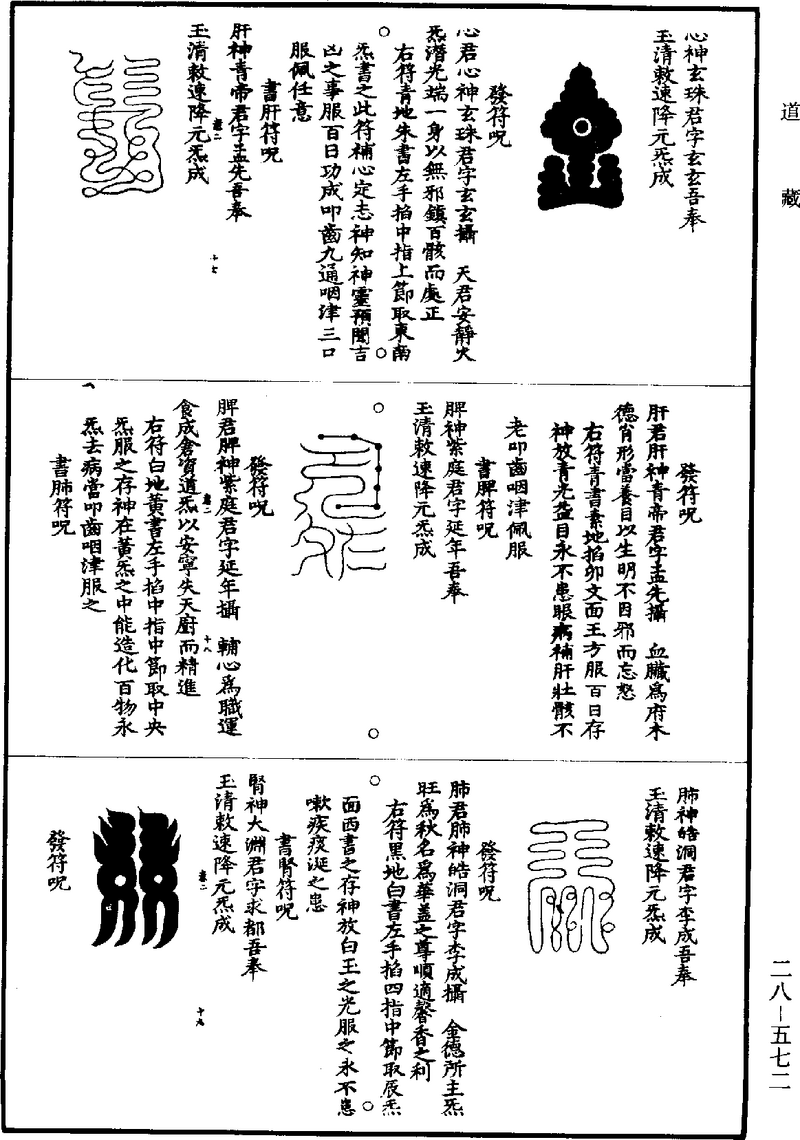 道藏
心神玄珠君字玄玄吾奉
玉清敕速降元炁成
發符呪
心君心神玄珠君字玄玄攝　天君安靜火
炁潛光端一身以無邪鎮百骸而處正
右符青地朱書左手掐中指上節取東南
炁書之此符補心定志神知神靈預聞吉
凶之事服百日功成叩齒九通咽津三口
服佩任意
書肝符呪
肝神青帝君字孟先吾奉
卷二
十七
玉清敕速降元炁成
發符呪
肝君肝神青帝君字孟先攝　血臟為府木
德肖形當養目以生明不因邪而忘怒
右符青書素地掐卯文面王方服百日存
神放青光益目永不患眼病補肝壯骸不
老叩齒咽津佩服
書脾符呪
脾神紫庭君字延年吾奉
玉清敕速降元炁成
發符呪
脾君脾神紫庭君字延年攝　輔心為職運
卷二
十八
食成倉資道炁以安寧失天廚而精進
右符白地黃書左手掐中指中節取中央
炁服之存神在黃炁之中能造化百物永
炁去病當叩齒咽津服之
書肺符呪
肺神皓洞君字李成吾奉
玉清敕速降元炁成
發符呪
肺君肺神皓洞君字李成攝　金德所主炁
旺為秋名為華蓋之尊順適馨香之利
右符黑地白書左手掐四指中節取辰炁
面西書之存神放白王之光服之永不患
嗽疾痰涎之患
書腎符呪
腎神大淵君字求都吾奉
玉清敕速降元炁成
卷二
十九
發符呪
二八－五七二